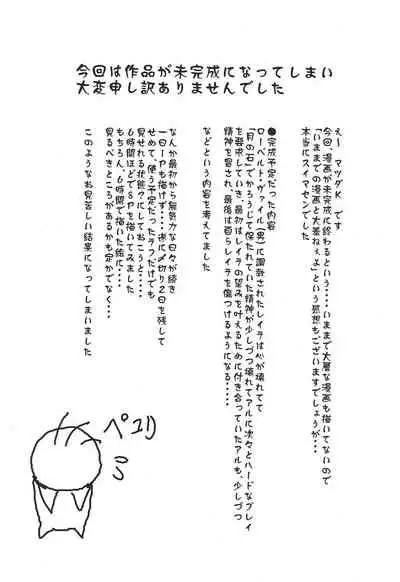 今回は作品が未完成になってしまい
大変申し訳ありませんでした
え～ マツダK です
今回、漫画が未完成に終わるという・・・・いままで大層な漫画も描いてないので
「いままでの漫画と大差ねぇよ」という感想もございますでしょうが・・・
本当にスイマセンでした
●完成予定だった内容
ローベルト・ヴァイル(男)に調教されたレイラは心が壊れてて
「月の石」でかろうじて保たれていた精神が少しづつ壊れてアルに次々とハードなプレイ
を要求していき、最初はレイラの望みを叶えるために付き合っていたアルも、少しづつ
精神を冒され、最後は自らレイラを傷つけるようになる・・・・・
などという内容を考えてました
なんか最初から無気力な日々が続き
一日1Pも描けず・・・・遂に〆切り2日を残して
せめて、使う予定だったラフだけでも
見せれる状態にしておこうと・・・・
6時間ほどで8Pを描いてみました
もちろん、6時間で描いた絵に・・・・
見るべきところがあるかも定かでなく・・・
このようなお見苦しい結果になってしまいました
ペコリ